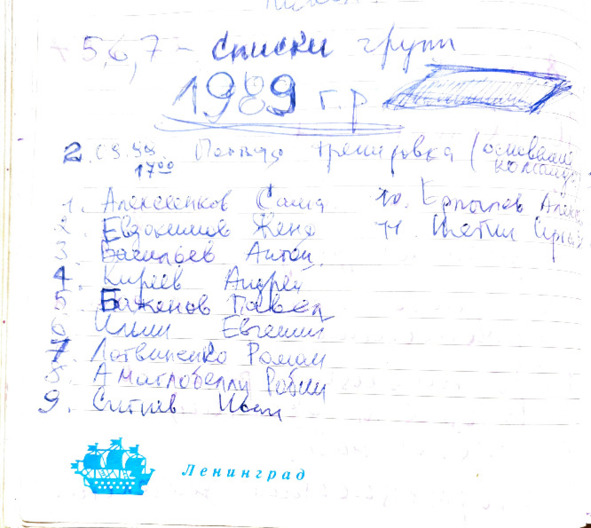 5,6,7 - списки групп
1989 г.р
2.09.98. Первая тренировка (основной
17⁰⁰ команды
1. Алексеенков Саша
2. Евдокимов Женя
3. Васильев Антон.
4. Киреев Андрей
5. Баженов Павел
6. Ильин Евгений
7. Литвиненко Роман
8. Амаглобелли Робин
9. Ситнов Иван
10. Ермолаев Алекс
11. Сергей
Ленинград